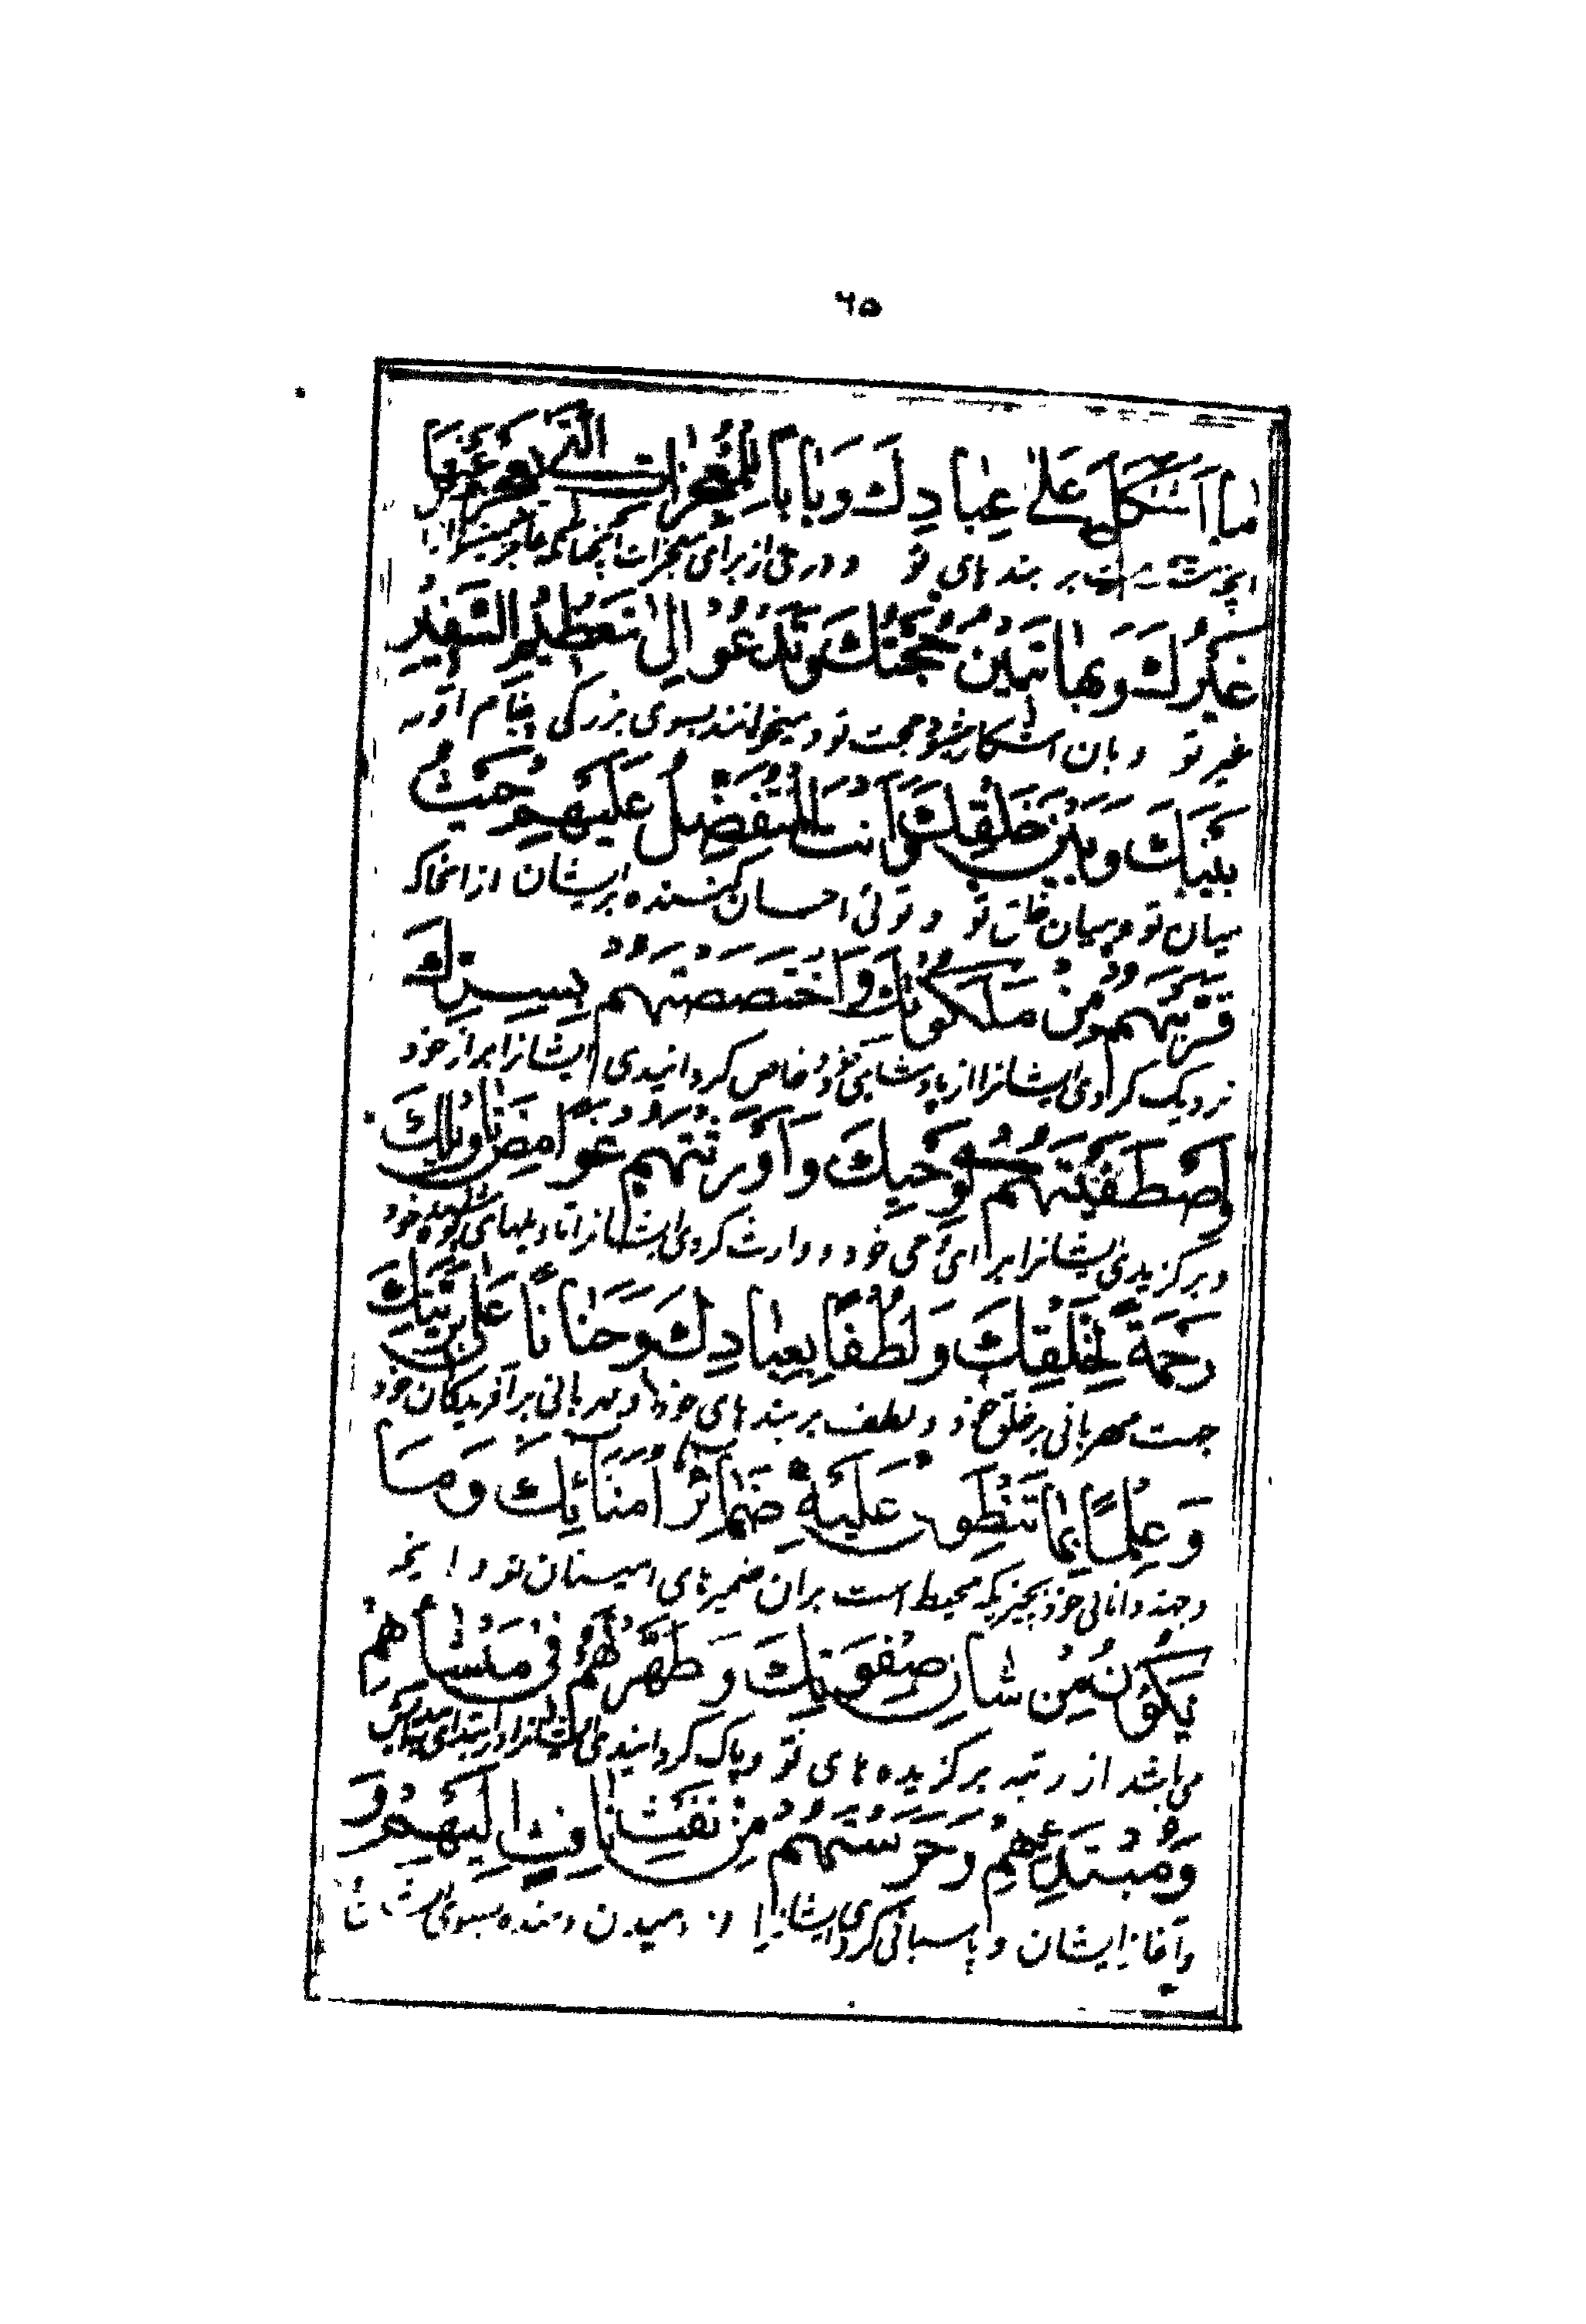 ۶۵
مَا اَشْكَلَ عَلٰى عِبَادِكَ وَبَابًا لِلْمُعْجِزَاتِ الَّتِي يَعْجِزُ عَنْهَا
بر بنده های تو و دری از برای معجزات
غَيْرُكَ وَبِهَا تَبِينُ حُجَّتُكَ وَتَدْعُوْ اِلٰى تَعْظِيمِ السَّفِيرِ
غیر تو و بان اشکار میشود حجت تو و میخوانند بسوی بزرکی پیغام اور
بَيْنَكَ وَبَيْنَ خَلْقِكَ وَاَنْتَ الْمُتَفَضِّلُ عَلَيْهِمْ حَيْثُ
میان تو و میان خلق تو و توئی احسان کننده بر ایشان از انجا که
قَرَّبْتَهُمْ مِنْ مَلَكُوتِكَ وَاخْتَصَصْتَهُمْ بِسِرِّكَ
نزدیک کردی ایشانرا از پادشاهی خود و خاص کردانیدی ایشانرا براز خود
وَاصْطَفَيْتَهُمْ لِوَحْيِكَ وَاَوْرَثْتَهُمْ غَوَامِضَ تَاْوِيلِكَ
و برکزیدی ایشانرا برای وحی خود و وارث کردی ایشانرا تاویلهای خود
رَحْمَةً لِخَلْقِكَ وَلُطْفًا بِعِبَادِكَ وَحَنَانًا عَلٰى بَرِيَّتِكَ
جهت مهربانی بر خلق خود و لطف بر بنده های خود و مهربانی بر آفریدکان خود
وَعِلْمًا بِمَا تَنْطَوِي عَلَيْهِ ضَمَآئِرُ اُمَنَآئِكَ وَمَا
و جهته دانائی خود بچیزیکه محیط است بران ضمیرهای امینان تو و انچه
يَكُونُ مِنْ شَاْنِ صِفْوَتِكَ وَطَهَّرْتَهُمْ فِى مَنْشَاِهِمْ
می باشد از رتبه برکزیده های تو و پاک کردانیدی ایشانرا در ابتدای
وَمُبْتَدَئِهِمْ وَحَرَسْتَهُمْ مِنْ نَفْثِ نَافِثٍ اِلَيْهِمْ وَ
و آغاز ایشان و پاسبانی کردی ایشانرا از دمیدن دمنده بسوی ایشان